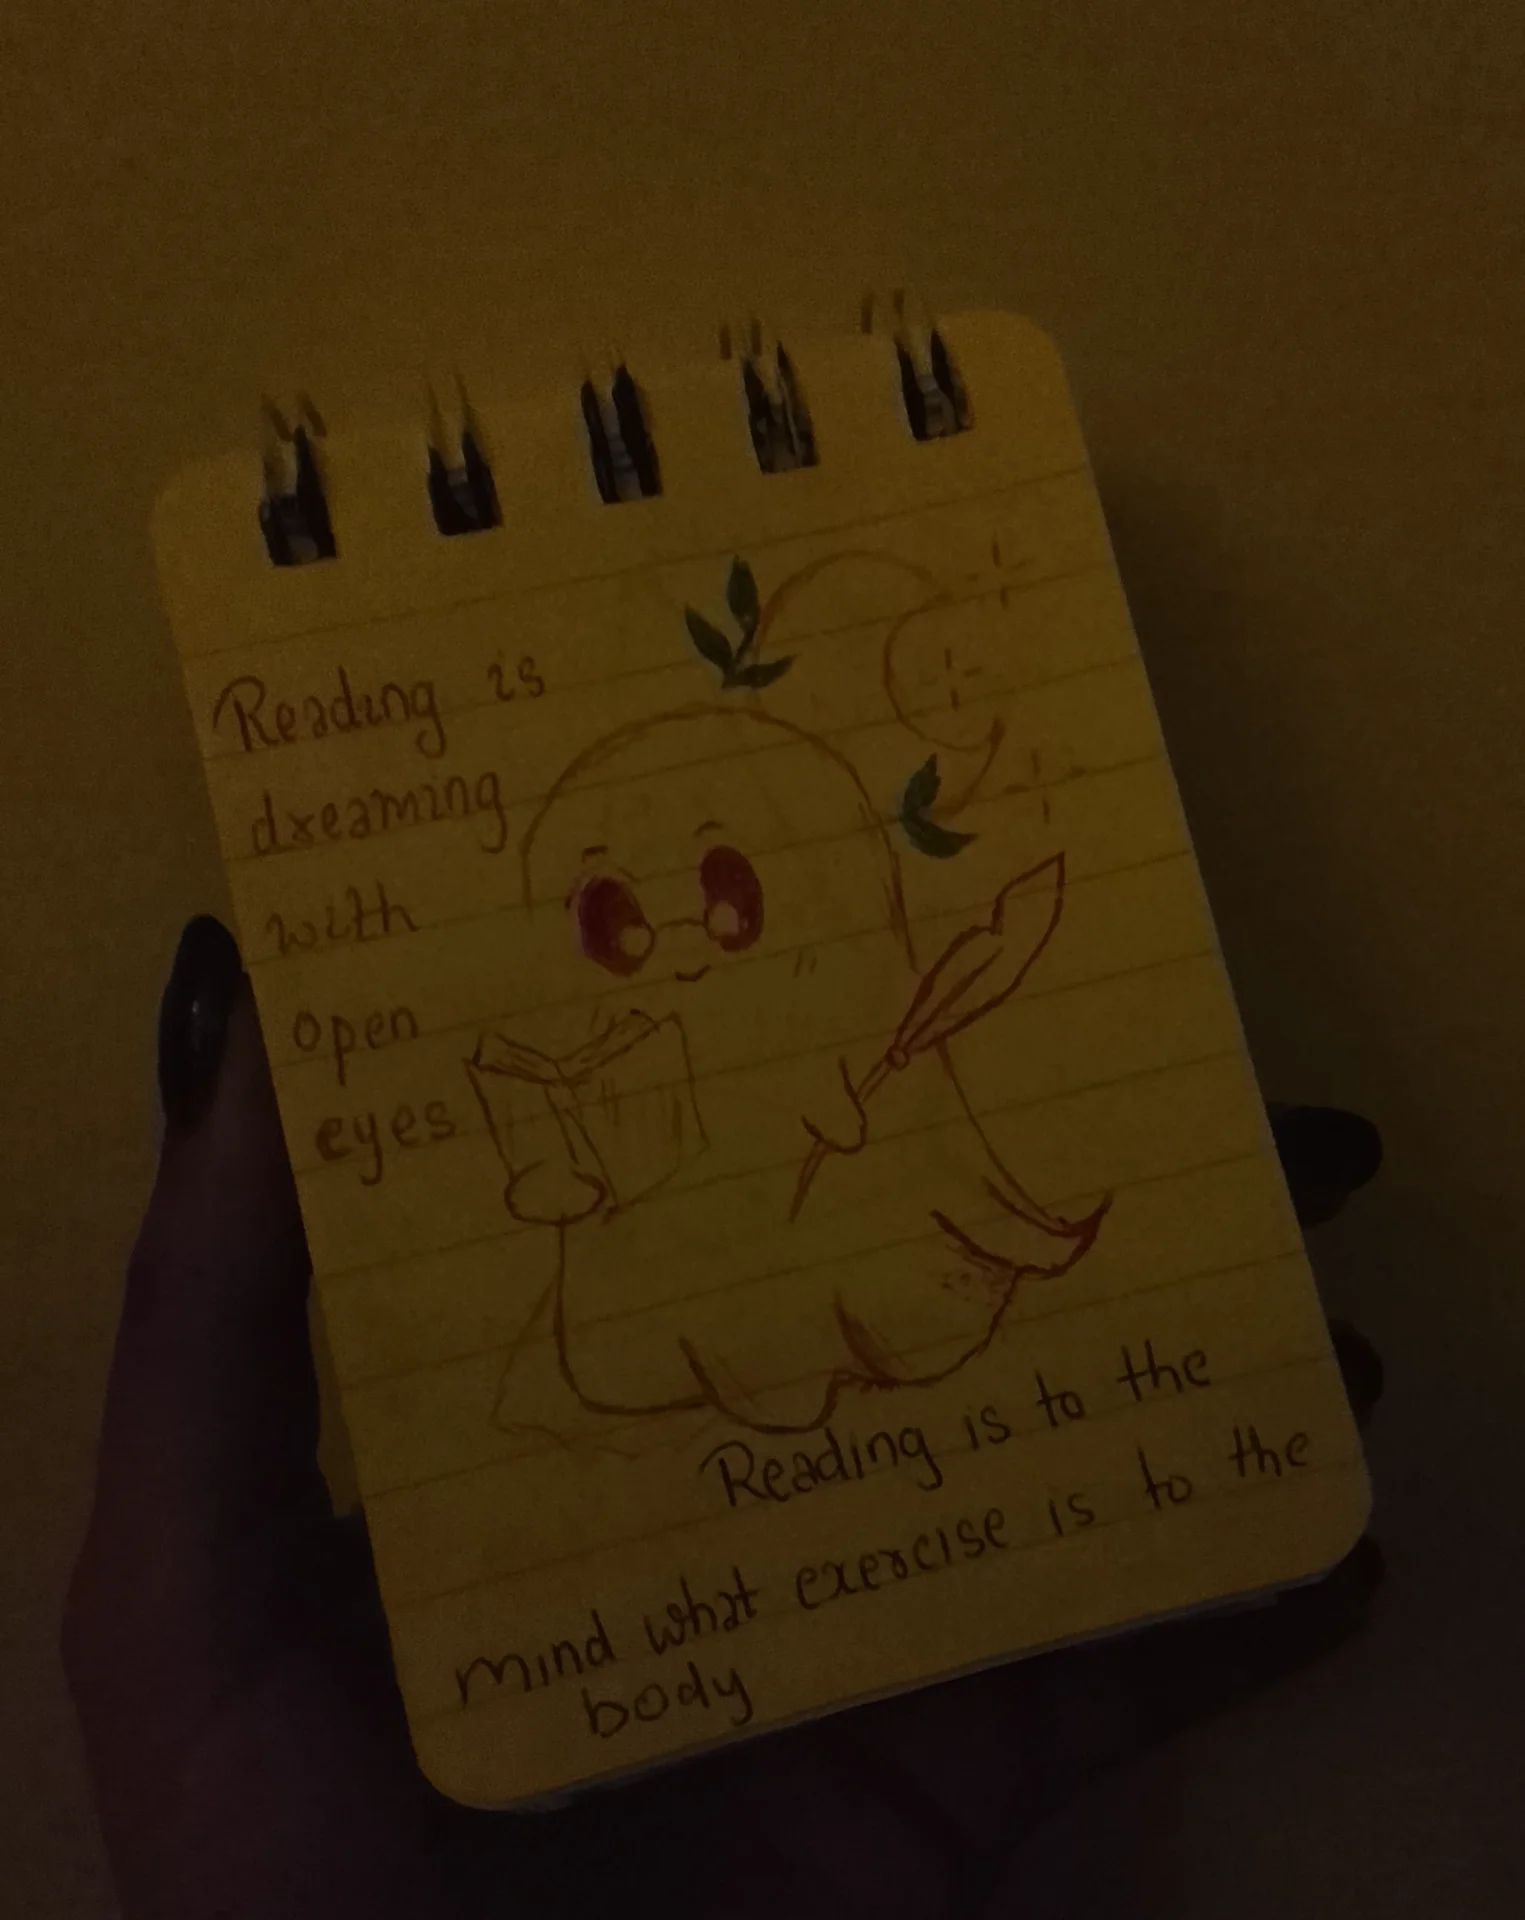 Reading is
dreaming
with
open
eyes
Reading is to the
mind what exercise is to the
body